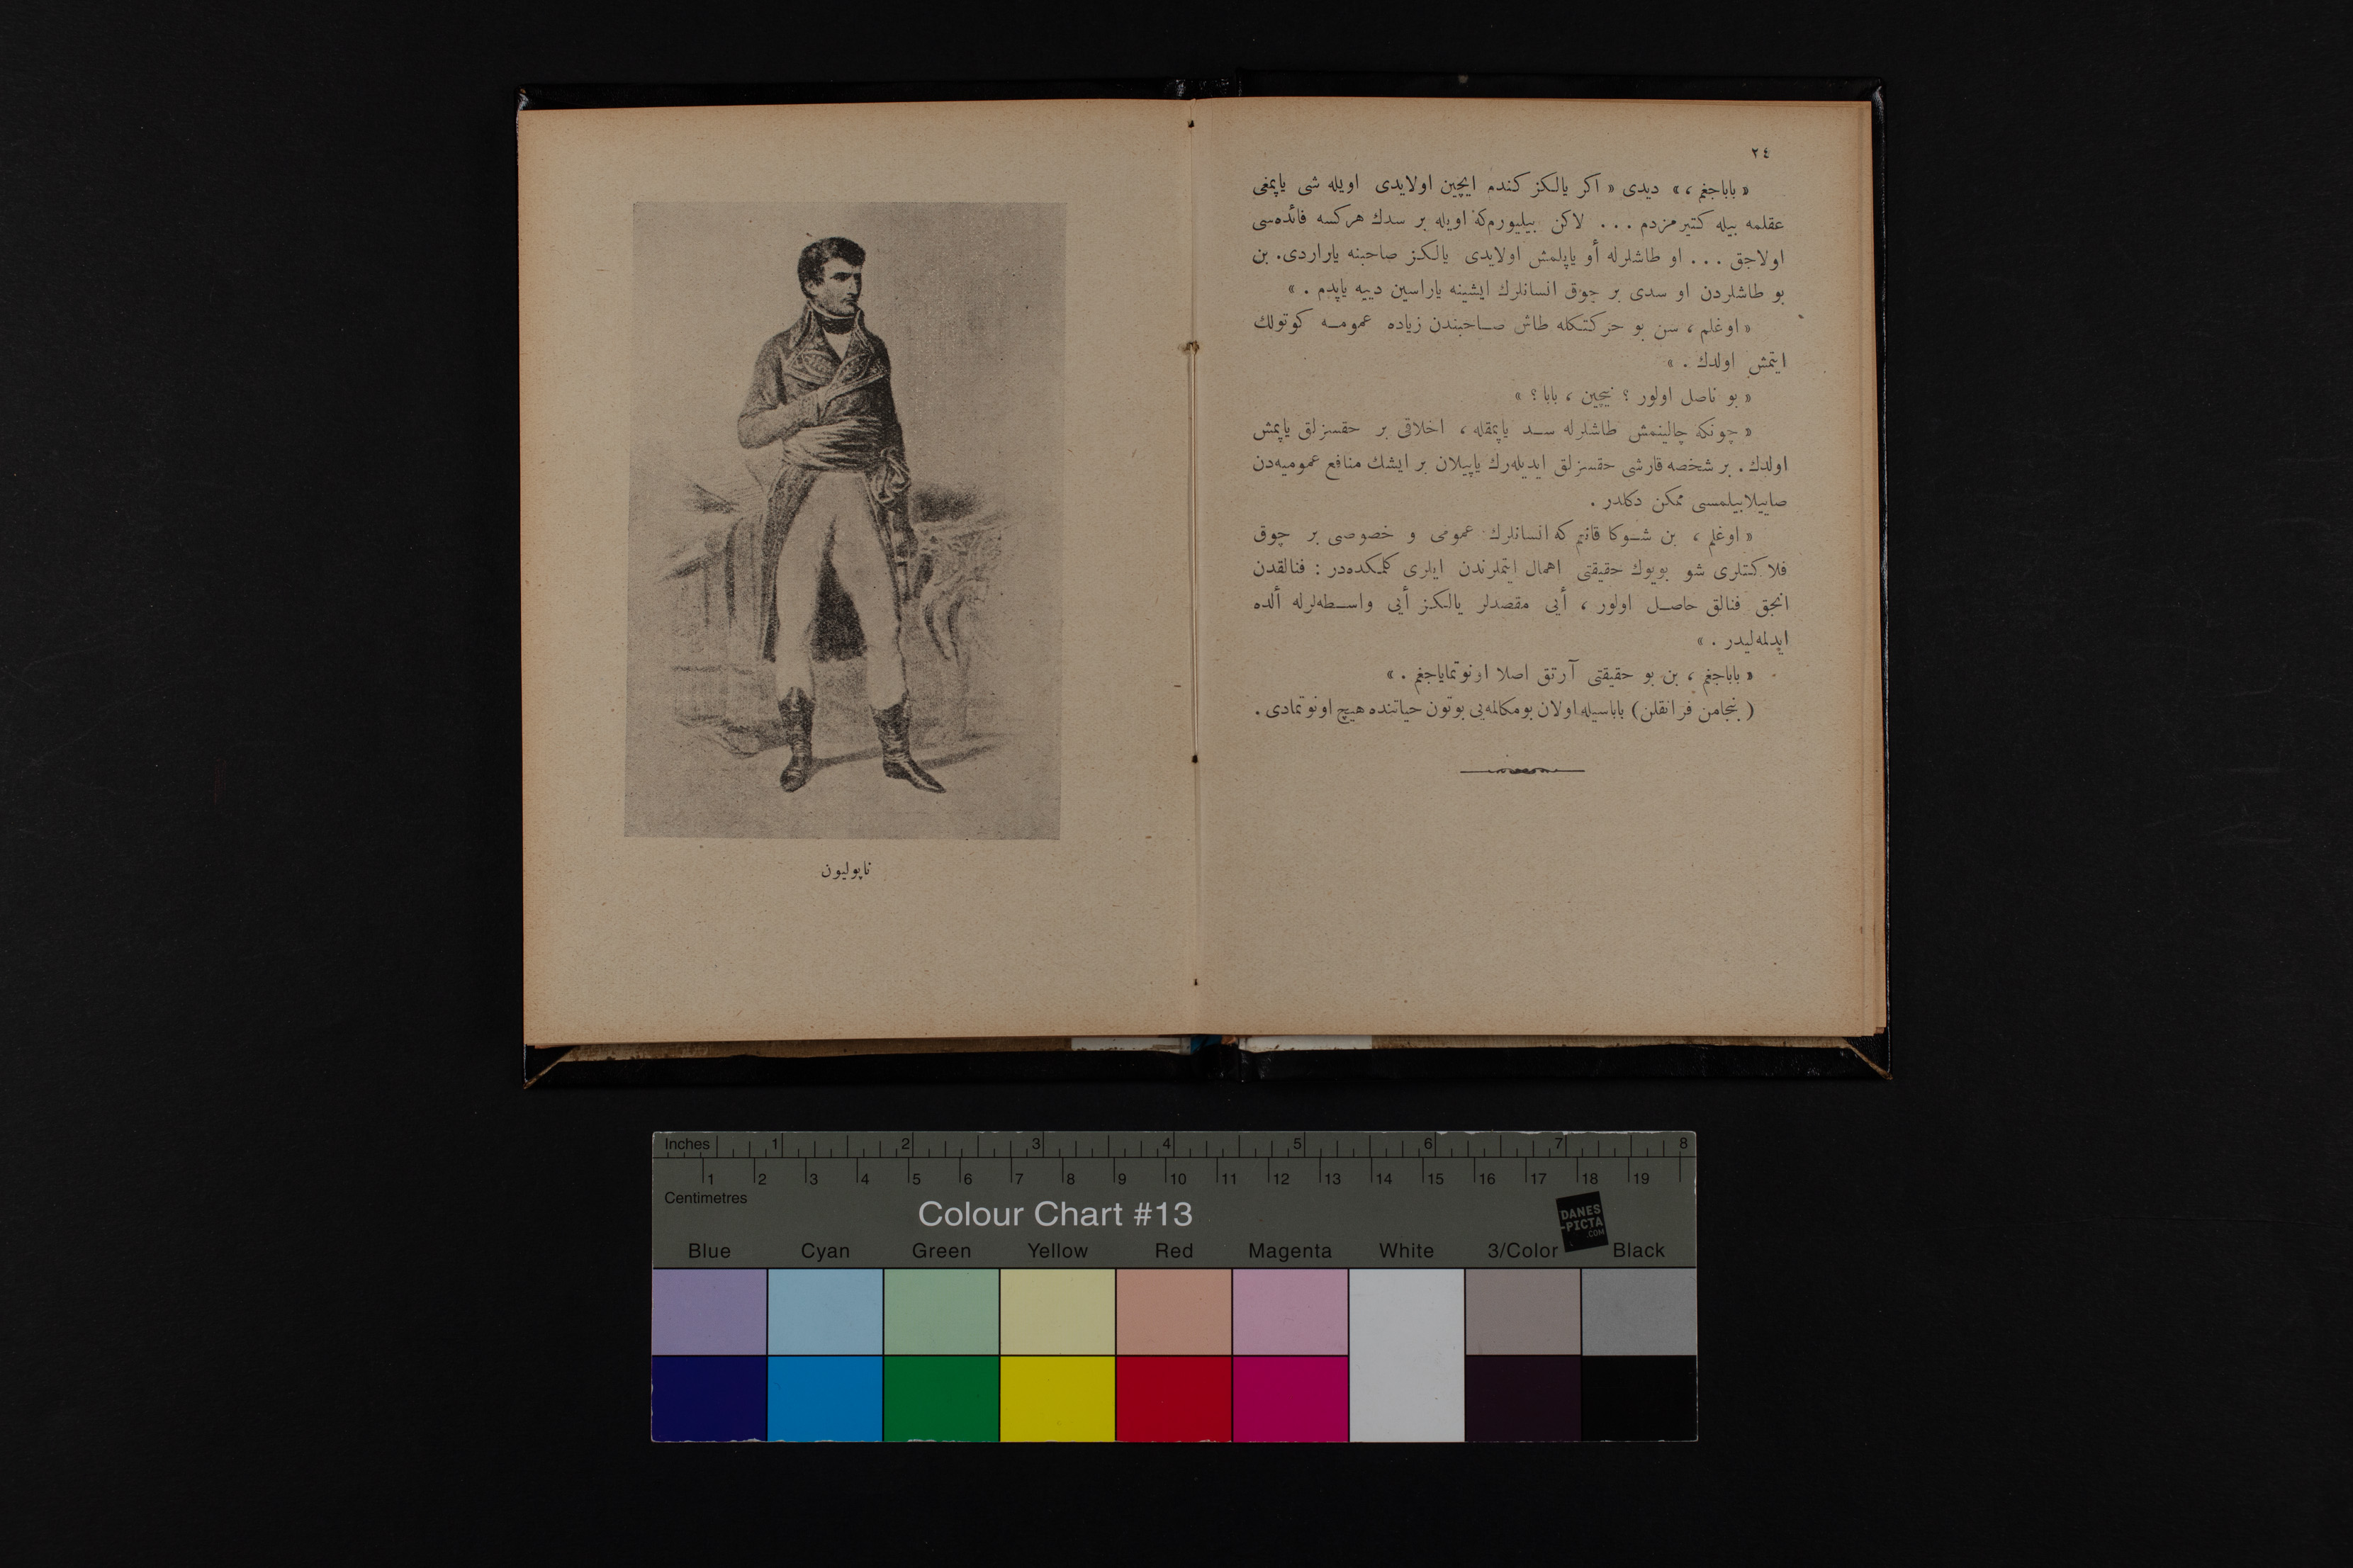 ٢٤
« باباجغم ، » ديدى « اكر يالكز كندم ايچين اولايدى اويله شى ياپمغى
عقلمه بيله كتيرمزدم . . . لاكن بيليورم‌كه اويله بر سدك هركسه فائده‌سى
اولاجق . . . او طاشلرله أو ياپلمش اولايدى يالكز صاحبنه ياراردى. بن
بو طاشلردن او سدى بر چوق انسانلرك ايشينه ياراسين دييه ياپدم . »
« اوغلم ، سن بو حركتكله طاش صاحبندن زياده عمومه كوتولك
ايتمش اولدك . »
« بو ناصل اولور ؟ نيچين ، بابا ؟ »
« چونكه چالينمش طاشلرله سد ياپمقله ، اخلاقى بر حقسزلق ياپمش
اولدك . بر شخصه قارشى حقسزلق ايديله‌رك ياپيلان بر ايشك منافع عموميه‌دن
صاييلابيلمسى ممكن دكلدر .
« اوغلم ، بن شوكا قانعم كه انسانلرك عمومى و خصوصى بر چوق
فلاكتلرى شو بويوك حقيقتى اهمال ايتملرندن ايلرى كلمكده‌در : فنالقدن
انجق فنالق حاصل اولور ، أيى مقصدلر يالكز أيى واسطه‌لرله ألده
ايدلمه‌ليدر . »
« باباجغم ، بن بو حقيقتى آرتق اصلا اونوتماياجغم . »
( بنجامن فرانقلن ) باباسيله اولان بومكالمه‌يى بوتون حياتنده هيچ اونوتمادى .
ناپوليون
Inches 1 2 3 4 5 6 7 8
1 2 3 4 5 6 7 8 9 10 11 12 13 14 15 16 17 18 19
Centimetres
Colour Chart #13
DANES
-PICTA
.COM
Blue Cyan Green Yellow Red Magenta White 3/Color Black